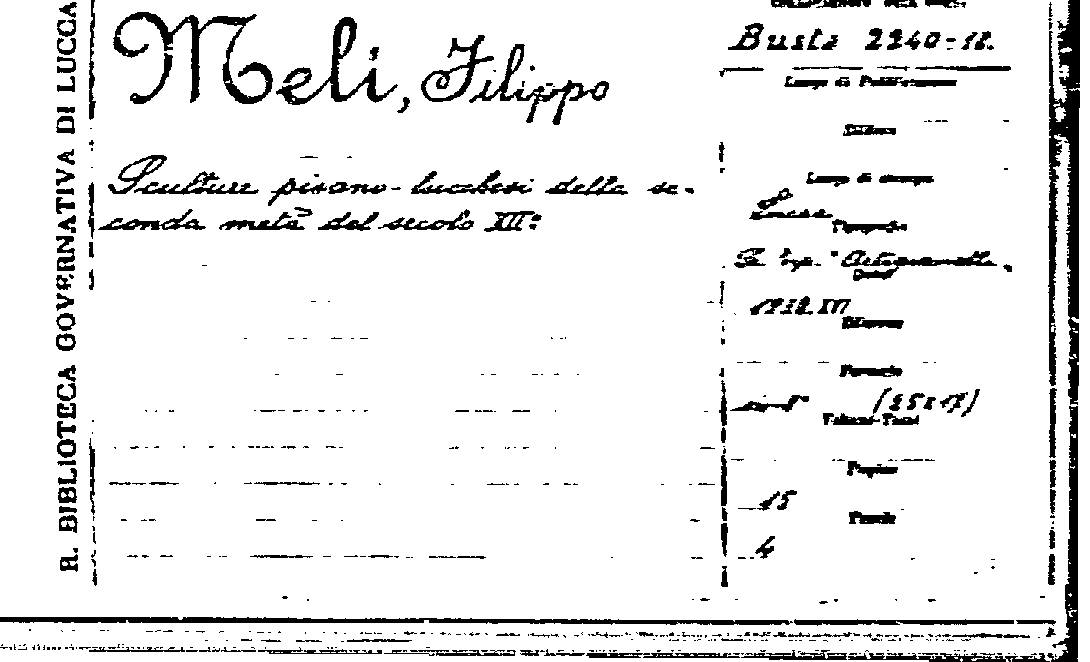 R. BIBLIOTECA GOVERNATIVA DI LUCCA
Meli, Filippo
Sculture pisano-lucchesi della se-
conda metà del secolo XII°
Busta 2240-12.
Luogo di Pubblicazione
Editore
Luogo di stampa
Lucca
Tipografia
"Artigianelli"
Formato
(25x17)
Volumi-Tomi
Pagine
15
Tavole
4